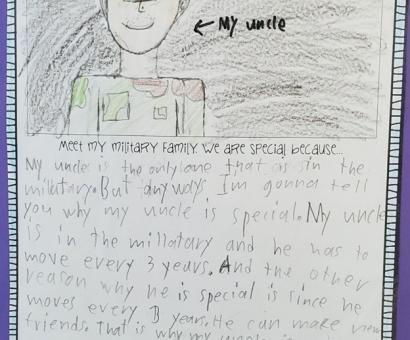 ← My uncle
Meet my military family. We are special because...
My uncle is the only one that is in the
military. But anyways I'm gonna tell
you why my uncle is special. My uncle
is in the millatary and he has to
move every 3 years. And the other
reason why he is special is since he
moves every 3 years. He can make new
friends. That is why my uncle is